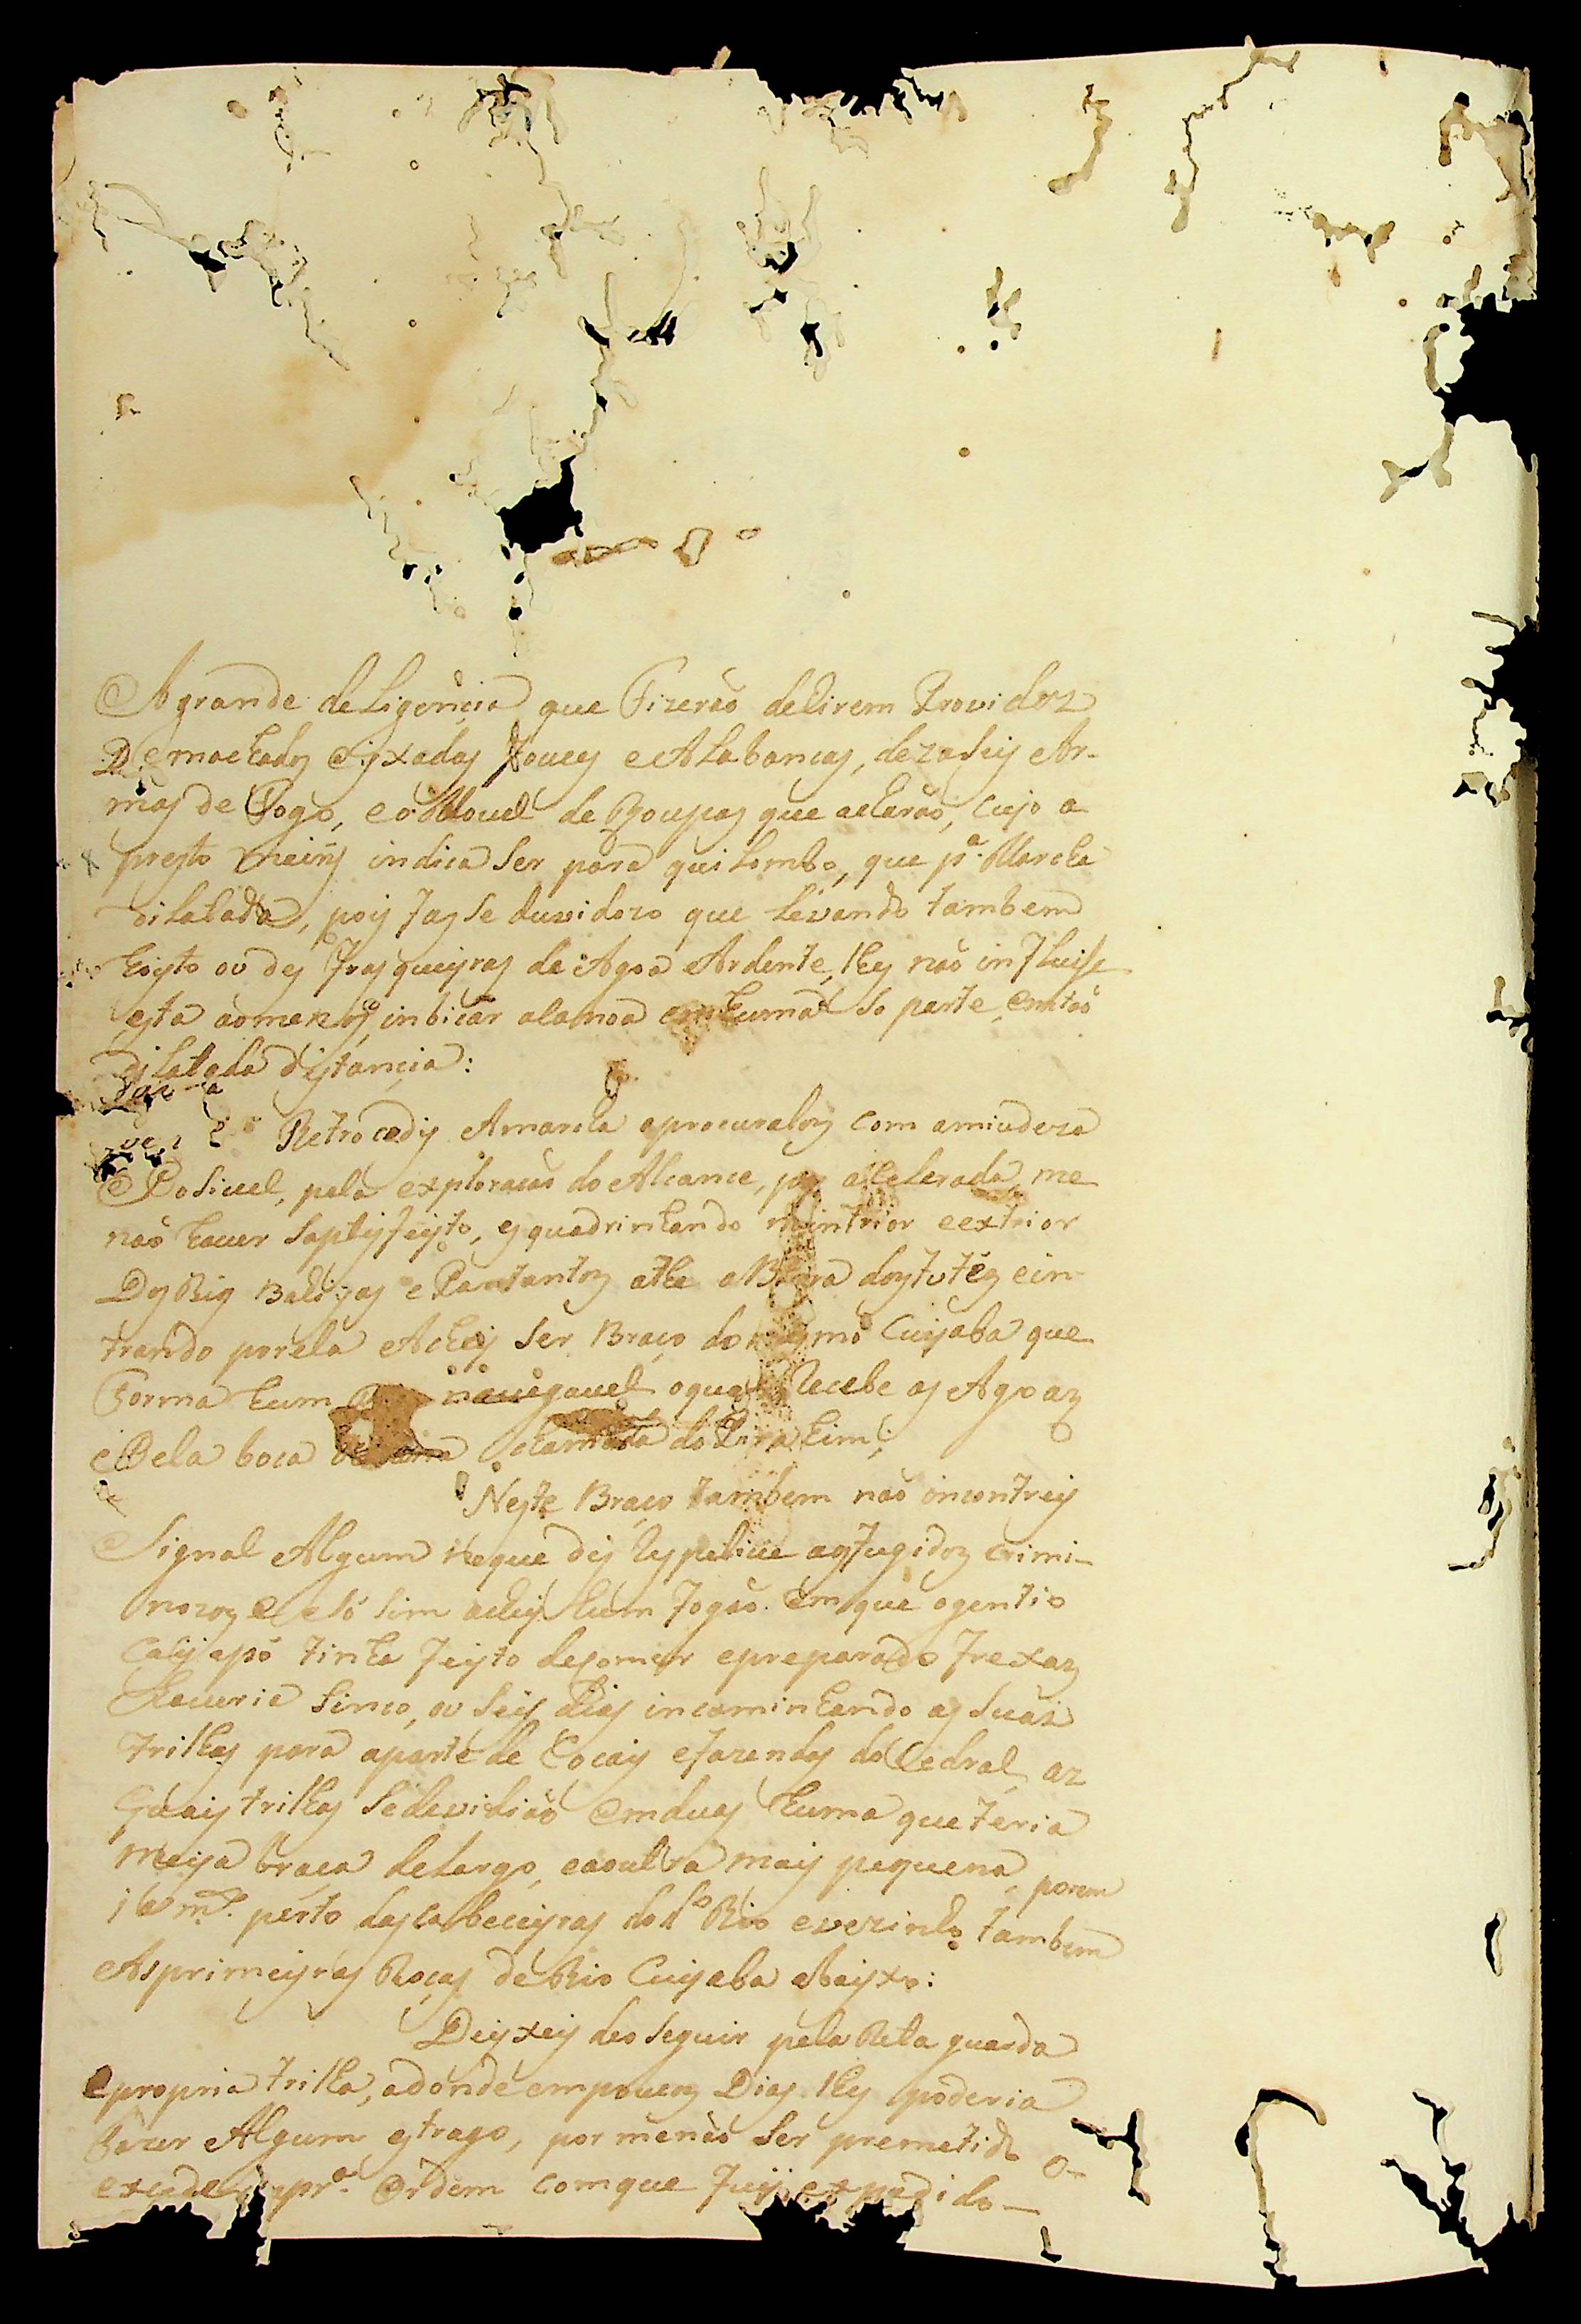 A grande deLigençia que Fizerão delirem Providoz
De machados eixadas Fouces e ALabancas, dezaseis Ar-
mas de Fogo, e o Movel de Roupas que acharão, cujo a
presto mais indica ser para quiLombo, que pª. Marcha
diLatada, pois fasse duvidozo que Levando tambem
hoyto ou des frasqueyras de Agoa Ardente, lhes não infLuise
esta ao menos, inbicar a canoa em huma só parte, em tão
diLatada distançia:
Retrocedis Amarcha aprocuralos com amiudeza
Posivel, pela exploração do Alcance, por accelerada, me
não haver saptisfeyto, esquadrinhando no intrior e extrior
Dos Rios Bahias e Pantanos athe a Barra dos tutes e in-
trando por ela Achey ser Braço do mesmo Cuyaba que
Forma hum navegavel o qual Recebe as Agoas
e Pela boca chamada do Pirahim;
Neste Braço tambem não incontrey
Signal Algum que dis Respetive aos fugidos crimi-
nozos e só sim achey hum fogão em que o gentio
Cayapó tinha feyto de comer e preparado frexas
Haveria sinco, ou seis dias incaminhando as suas
trilhas para a parte de Cocais e fazendas do Cedral, as
Quais trilhas se devidião em duas huma que teria
Meya braca de Largo, e a outra mais pequena, porem
mto. perto das cabeceyras do do Rio e vezinho tambem
As primeyras Roças de Rio Cuyaba Abayxo:
Deyxey de os seguir pela Reta guarda
e propria trilha, adonde em poucos Dias lhes poderia
Fazer Algum estrago, por me não ser premetido
exceder a prª. Ordem com que fuy expedido